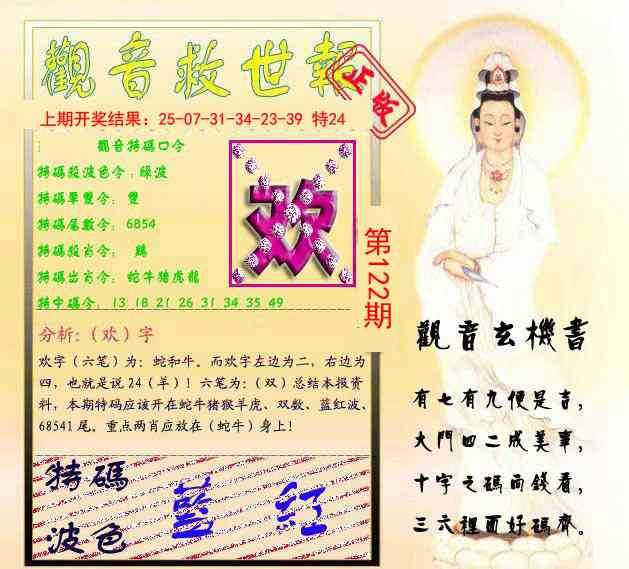 觀音救世報
正版
上期开奖结果：25-07-31-34-23-39 特24
觀音特碼口令
特碼殺波色令：綠波
特碼單雙令：雙
特碼尾數令：6854
特碼殺肖令：鷄
特碼出肖令：蛇牛豬虎龍
特中碼令：13 18 21 26 31 34 35 49
欢
第122期
分析:（欢）字
欢字（六笔）为：蛇和牛。而欢字左边为二，右边为
四，也就是说24（羊）！六笔为：（双）总结本报资
料，本期特码应该开在蛇牛猪猴羊虎、双数、蓝红波、
68541尾。重点两肖应放在（蛇牛）身上！
特碼
波色
藍 紅
觀音玄機書
有七有九便是吉，
大門四二成美事，
十字之碼向錢看，
三六裡面好碼齊。